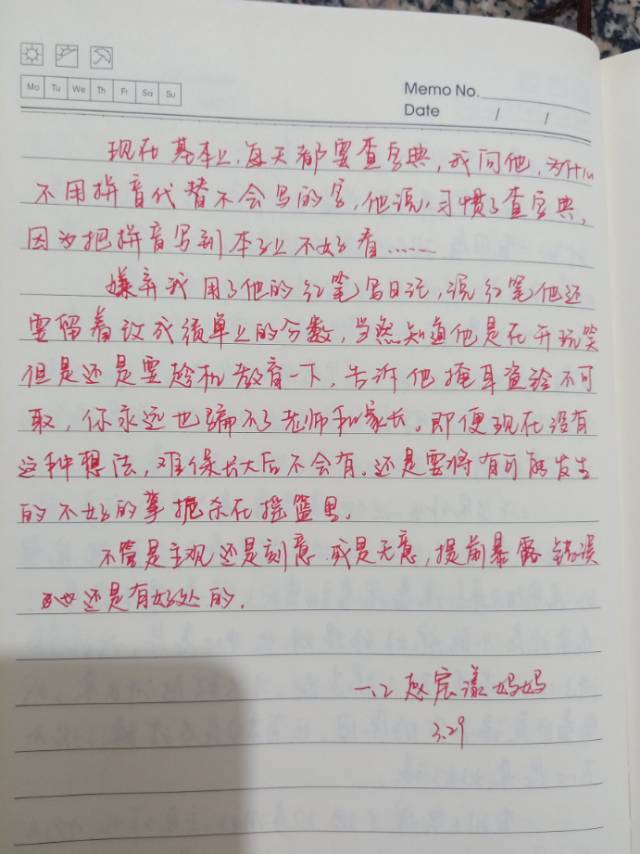 Mo Tu We Th Fr Sa Su
Memo No.
Date / /
现在基本上每天都要查字典,我问他,为什么
不用拼音代替不会写的字,他说,习惯了查字典,
因为把拼音写到本子上不好看……
嫌弃我用了他的红笔写日记,说红笔他还
要留着改成绩单上的分数,当然知道他是在开玩笑
但是还是要趁机教育一下,告诉他掩耳盗铃不可
取,你永远也骗不了老师和家长。即便现在没有
这种想法,难保长大后不会有。还是要将有可能发生
的不好的事扼杀在摇篮里。
不管是主观还是刻意或是无意,提前暴露错误
还是有好处的.
一.2 宸漾妈妈
3.29